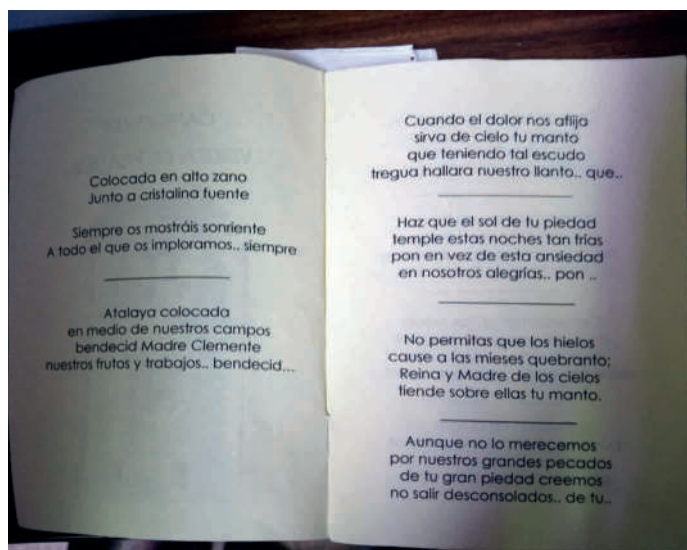 Colocada en alto zano
Junto a cristalina fuente
Siempre os mostráis sonriente
A todo el que os imploramos.. siempre
Atalaya colocada
en medio de nuestros campos
bendecid Madre Clemente
nuestros frutos y trabajos.. bendecid...
Cuando el dolor nos aflija
sirva de cielo tu manto
que teniendo tal escudo
tregua hallara nuestro llanto.. que..
Haz que el sol de tu piedad
temple estas noches tan frías
pon en vez de esta ansiedad
en nosotros alegrías.. pon ..
No permitas que los hielos
cause a las mieses quebranto;
Reina y Madre de los cielos
tiende sobre ellas tu manto.
Aunque no lo merecemos
por nuestros grandes pecados
de tu gran piedad creemos
no salir desconsolados.. de tu..